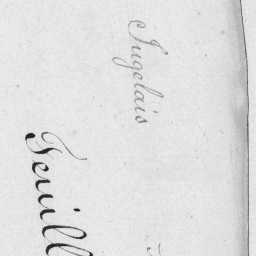 Jugelais
Feuill